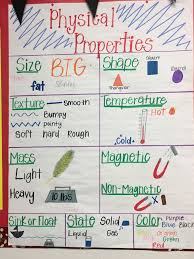 Physical
Properties
Size BIG
fat
Shape
Triangular
Texture - Smooth
Bumpy
pointy
Soft hard Rough
Temperature
Hot
Cold
Mass
Light
Heavy
10 lbs
Magnetic
Non-Magnetic
Sink or Float
State
Solid
Liquid
Gas
Color
Purple
Blue Black
Green
Red